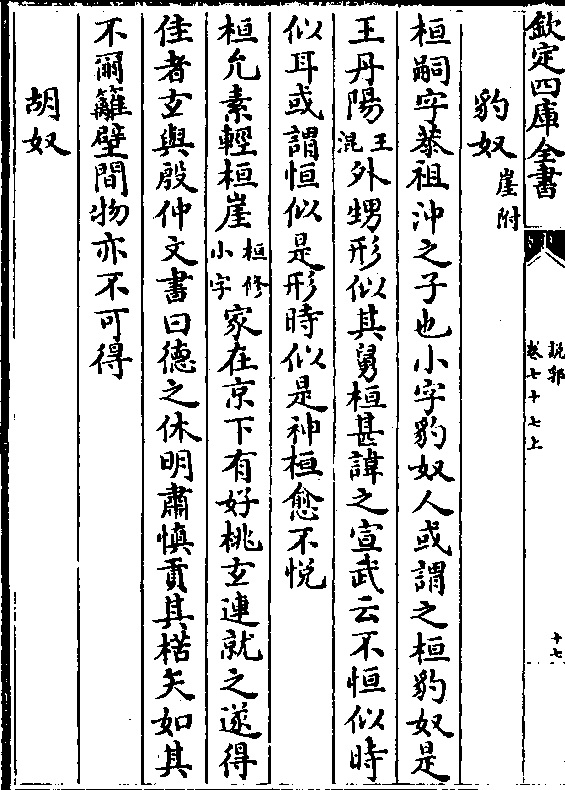 欽定四庫全書
說郛
卷七十七上
十七
豹奴崖附
桓嗣字恭祖沖之子也小字豹奴人或謂之桓豹奴是
王丹陽王混外甥形似其舅桓甚諱之宣武云不恒似時
似耳或謂恒似是形時似是神桓愈不悅
桓允素輕桓崖桓修小字家在京下有好桃玄連就之遂得
佳者玄與殷仲文書曰德之休明肅慎貢其楛矢如其
不爾籬壁間物亦不可得
胡奴